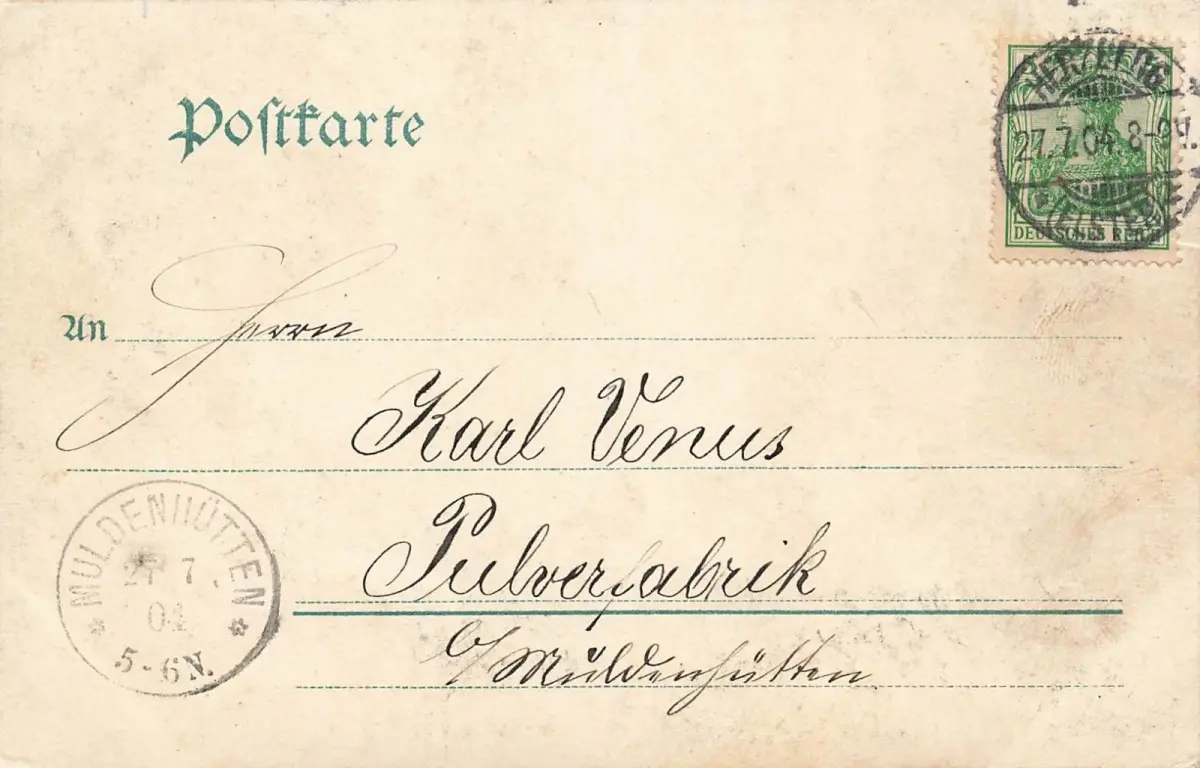 Postkarte
HERZBERG
27.7.04. 8-9V.
* (ELSTER)
DEUTSCHES REICH
An Herrn
Karl Venus
Pulverfabrik
b/ Muldenhütten
MULDENHÜTTEN
27 7
04
5-6N.